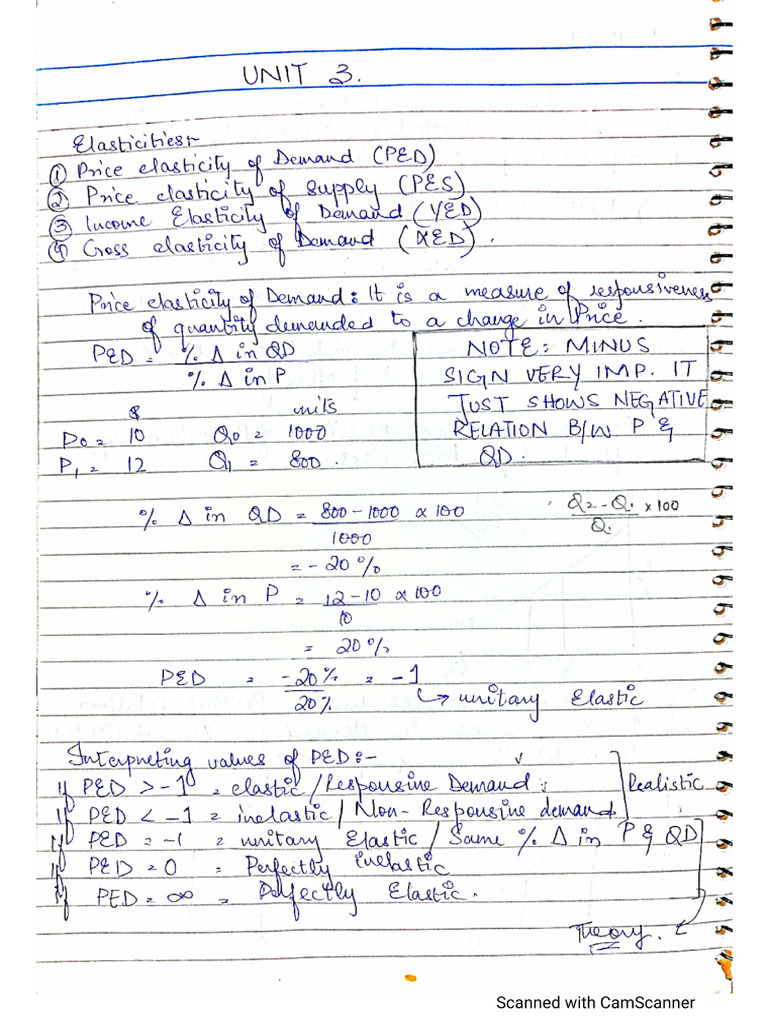 UNIT 3.
Elasticities:-
① Price elasticity of Demand (PED)
② Price elasticity of Supply (PES)
③ Income Elasticity of Demand (YED)
④ Cross elasticity of Demand (XED).
Price elasticity of Demand: It is a measure of responsiveness
of quantity demanded to a change in Price.
PED = % Δ in QD
% Δ in P
NOTE: MINUS
SIGN VERY IMP. IT
JUST SHOWS NEGATIVE
RELATION B/W P &
QD.
$ units
P0 = 10 Q0 = 1000
P1 = 12 Q1 = 800.
% Δ in QD = 800-1000 x 100
1000
Q2-Q1 x 100
Q1
= -20%
% Δ in P = 12-10 x 100
10
= 20%
PED = -20% = -1
20%
↳ unitary Elastic
Interpreting values of PED:-
If PED > -1 = elastic/Responsive Demand;
If PED < -1 = inelastic/Non-Responsive demand
Realistic
If PED = -1 = unitary Elastic/Same % Δ in P & QD
If PED = 0 = Perfectly inelastic
If PED = ∞ = Perfectly Elastic.
Theory.
Scanned with CamScanner